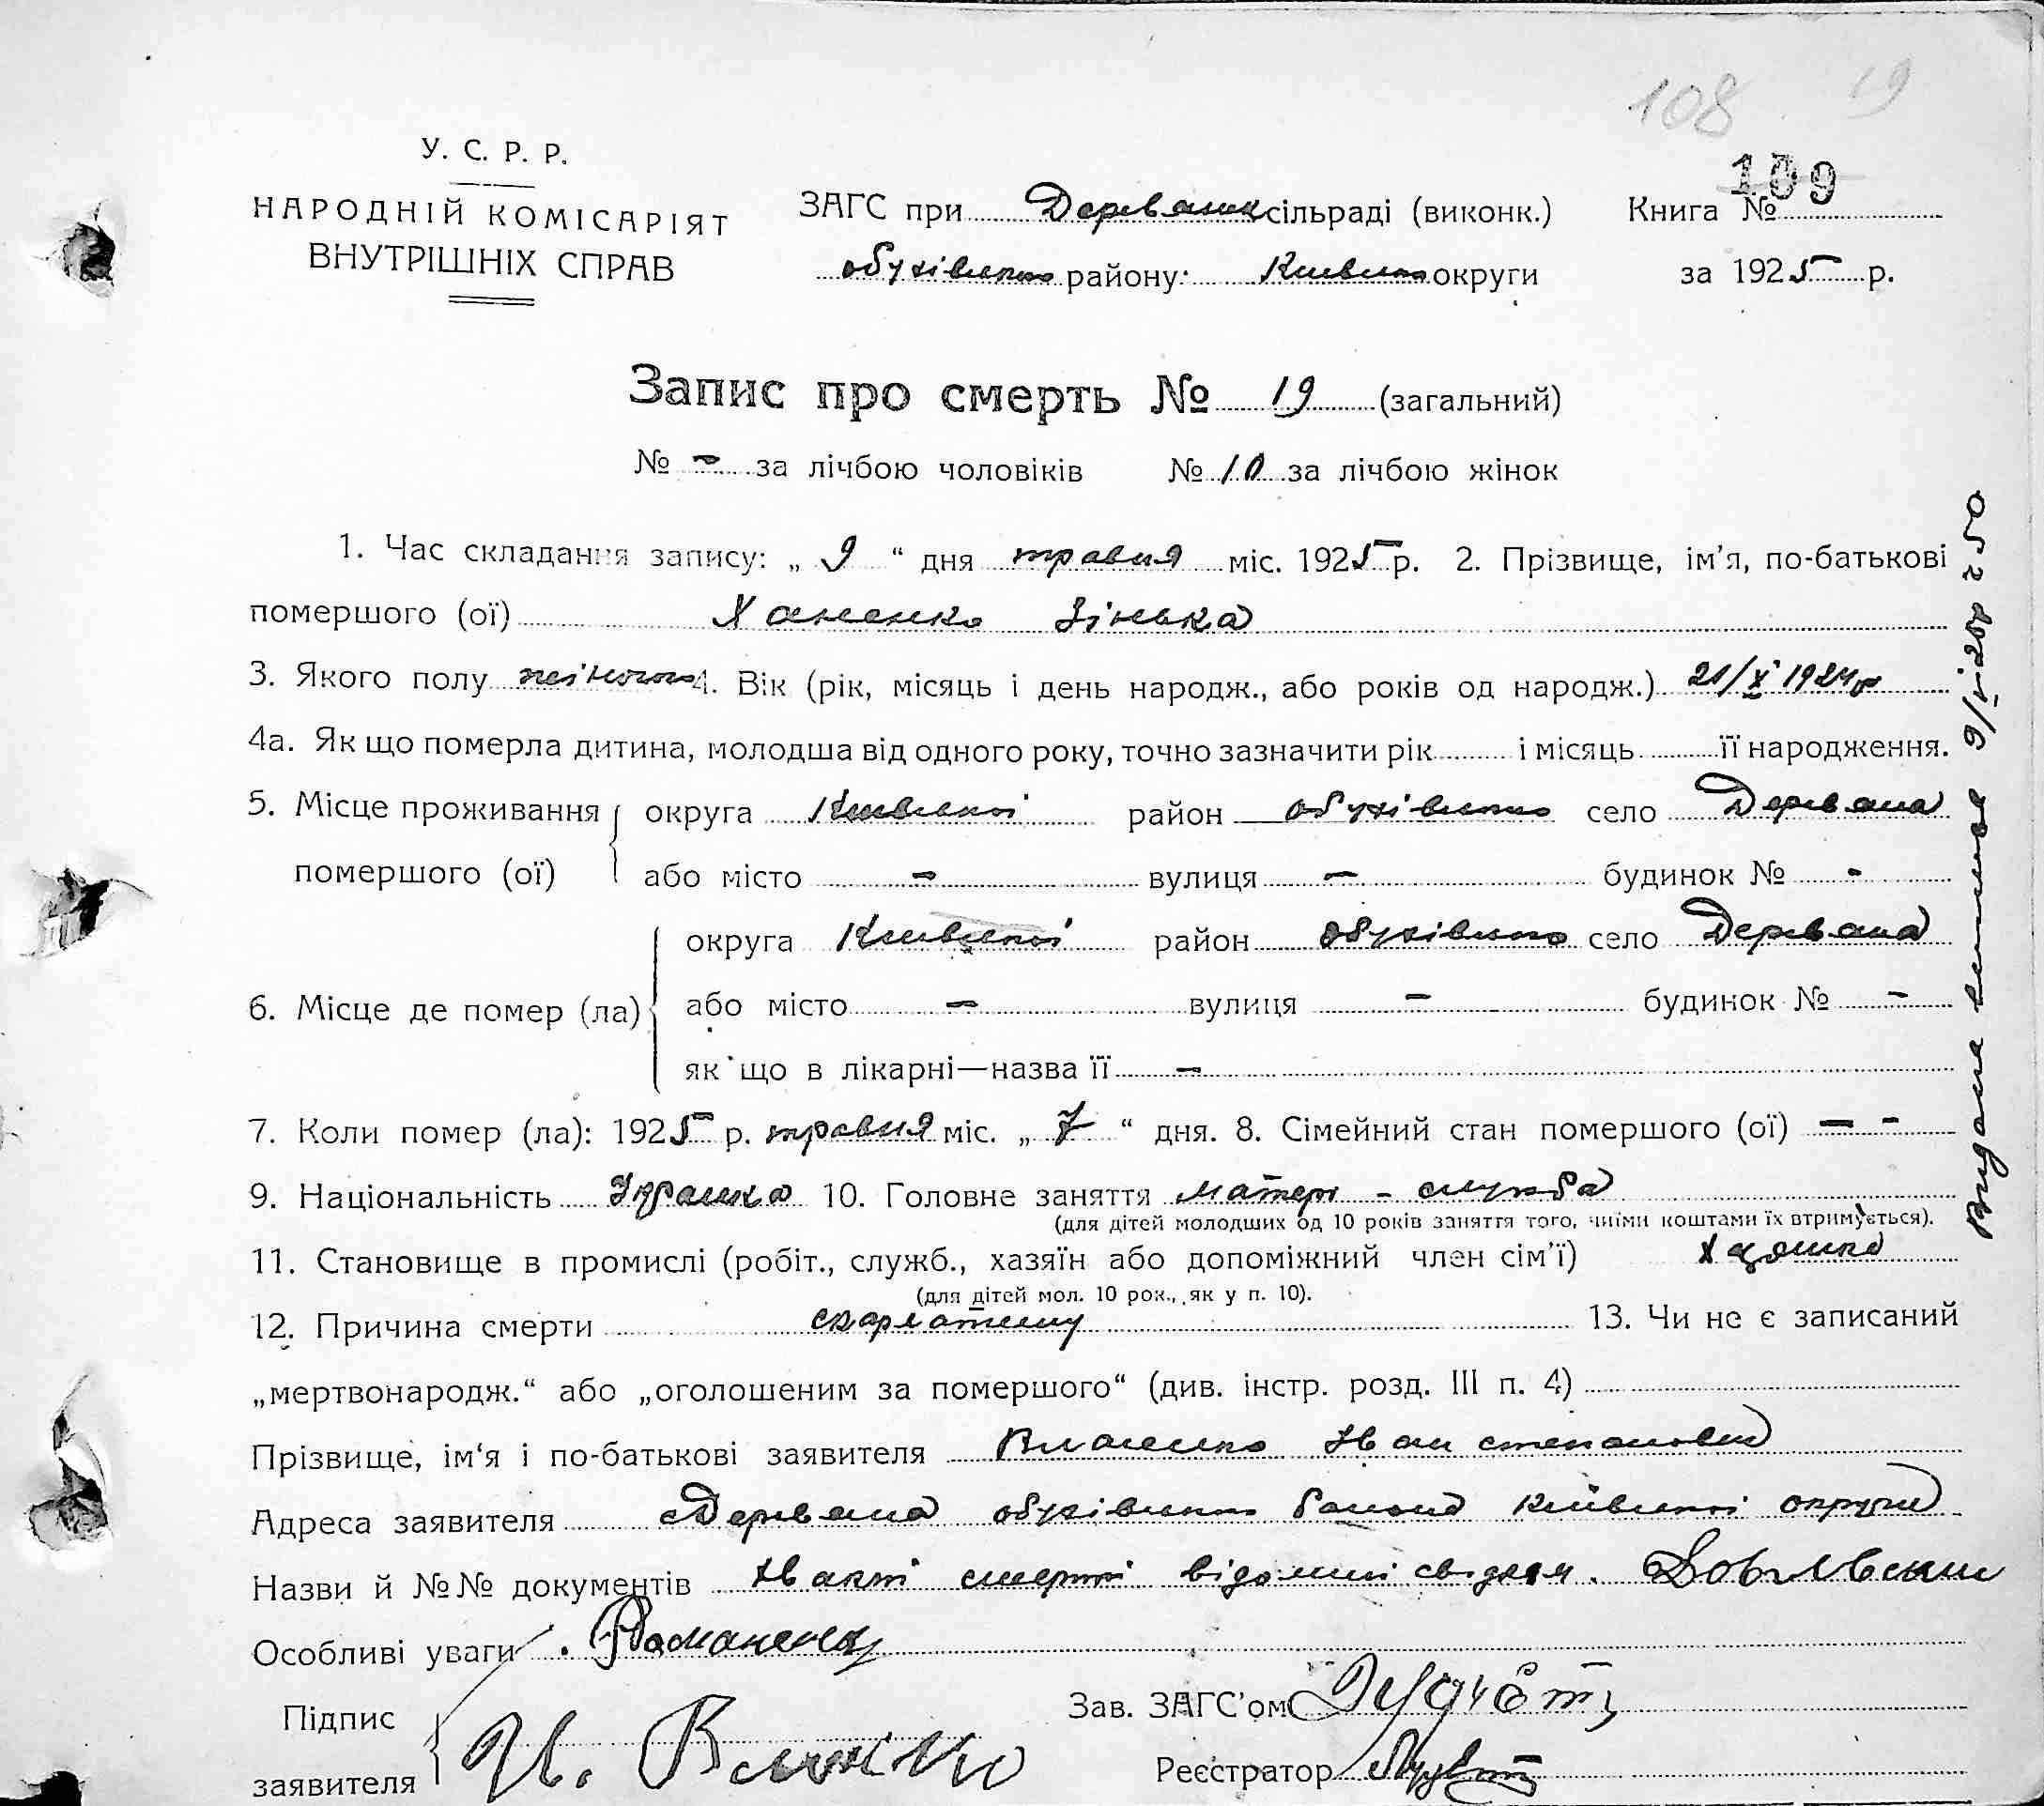 108 19
У. С. Р. Р.
НАРОДНІЙ КОМІСАРІЯТ
ВНУТРІШНІХ СПРАВ
ЗАГС при Деревянск сільраді (виконк.) Книга № 109
обухівського району: Київської округи за 1925 р.
Запис про смерть № 19 (загальний)
№ – за лічбою чоловіків № 10 за лічбою жінок
1. Час складання запису: „ 9 “ дня травня міс. 1925 р. 2. Прізвище, ім’я, по-батькові
помершого (ої) Ханенко Зінька
3. Якого полу жіночого 4. Вік (рік, місяць і день народж., або років од народж.) 21/X 1924 р
4а. Як що померла дитина, молодша від одного року, точно зазначити рік і місяць її народження.
5. Місце проживання округа Київської район обухівського село Деревяна
помершого (ої) або місто – вулиця – будинок № -
округа Київської район обухівського село Деревяна
6. Місце де помер (ла) або місто – вулиця – будинок № –
як що в лікарні—назва її –
7. Коли помер (ла): 1925 р. травня міс. „ 7 “ дня. 8. Сімейний стан помершого (ої) — -
9. Національність Украінка 10. Головне заняття матері - служба
(для дітей молодших од 10 років заняття того, чиїми коштами їх втримується).
11. Становище в промислі (робіт., служб., хазяїн або допоміжний член сім’ї)
(для дітей мол. 10 рок., як у п. 10).
12. Причина смерти скарлатину 13. Чи не є записаний
„мертвонародж.“ або „оголошеним за помершого“ (див. інстр. розд. III п. 4)
Прізвище, ім‘я і по-батькові заявителя Власенко Иван степанович
Адреса заявителя Деревяна обухівського Київської округи
Назви й №№ документів смерті відомий свідкам.
Особливі уваги Романенку
Підпис Зав. ЗАГС’ом
заявителя Реєстратор
Видана 9/V 25 р